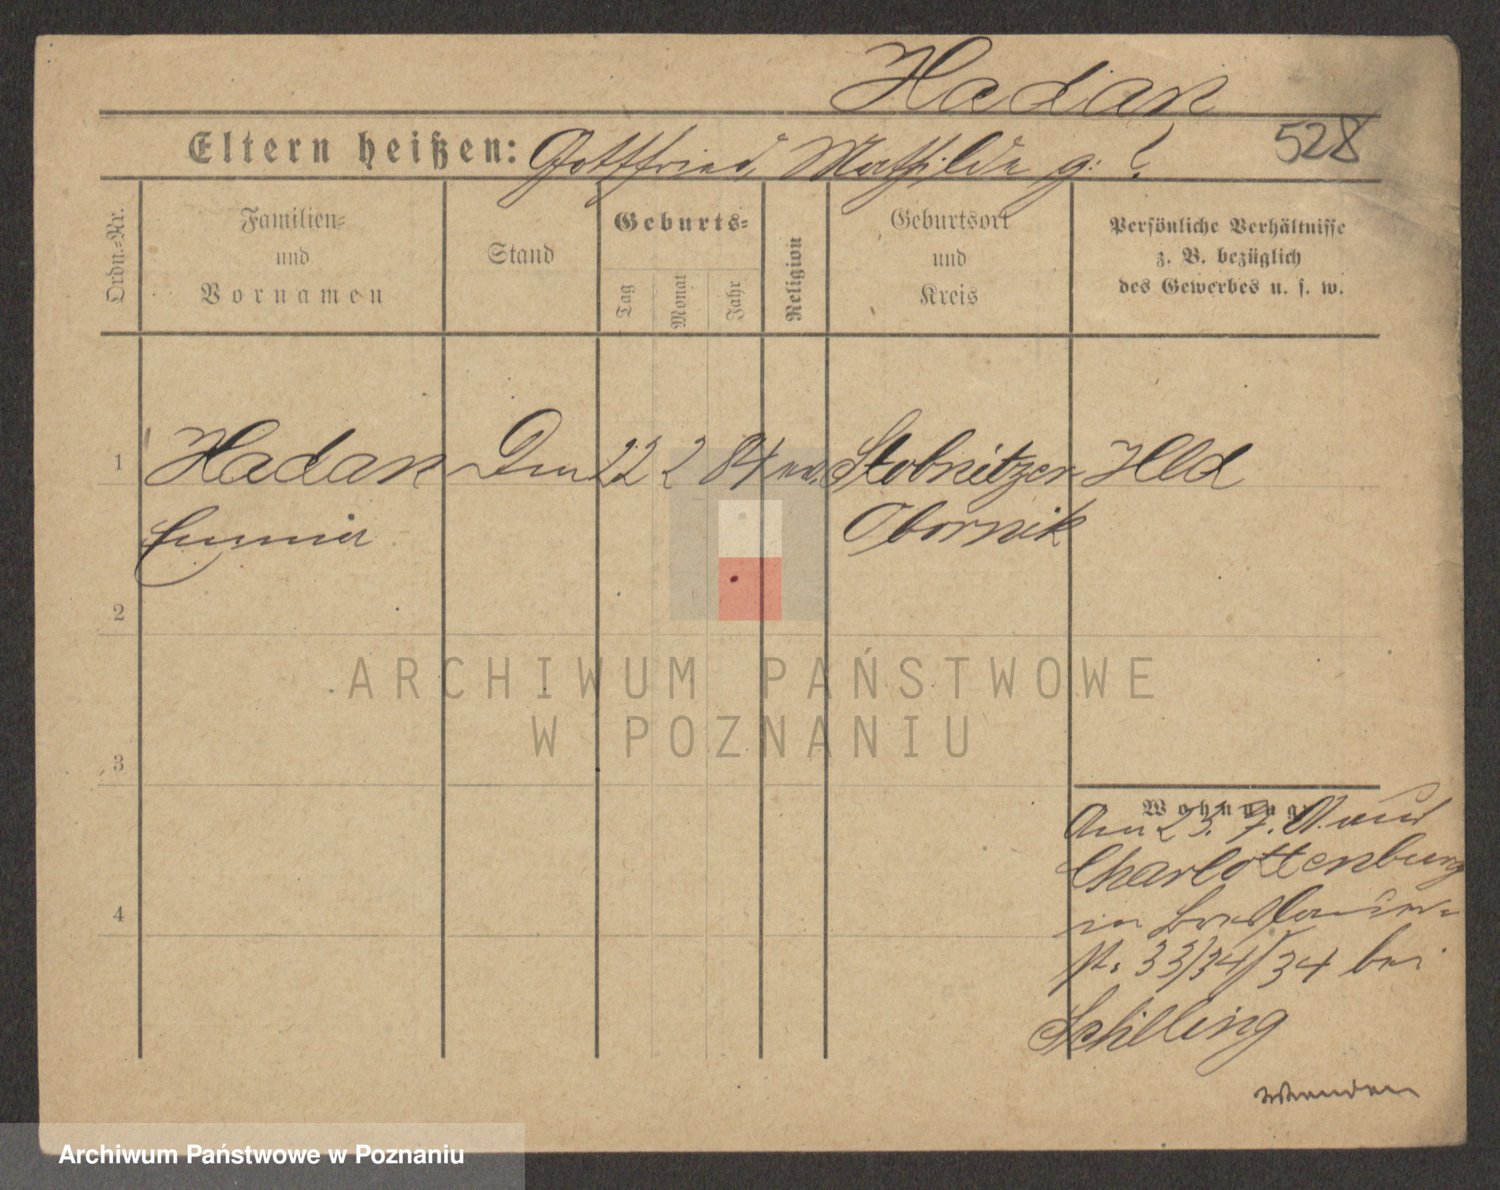 Hadan
Eltern heißen: Gottfried, Mathilde g: ?
528
Ordn.=Nr.
Familien=
und
Vornamen
Stand
Geburts=
Tag
Monat
Jahr
Religion
Geburtsort
und
Kreis
Persönliche Verhältnisse
z. B. bezüglich
des Gewerbes u. s. w.
1 Hadan 22 2 84 ev. Stobnitzer Hld
Emma Obornik
2
ARCHIWUM PAŃSTWOWE
W POZNANIU
3
Wohnung
Am 23. 7. aus
Charlottenburg
in Breslauer
St. 33/34/34 bei
Schilling
4
wenden
Archiwum Państwowe w Poznaniu